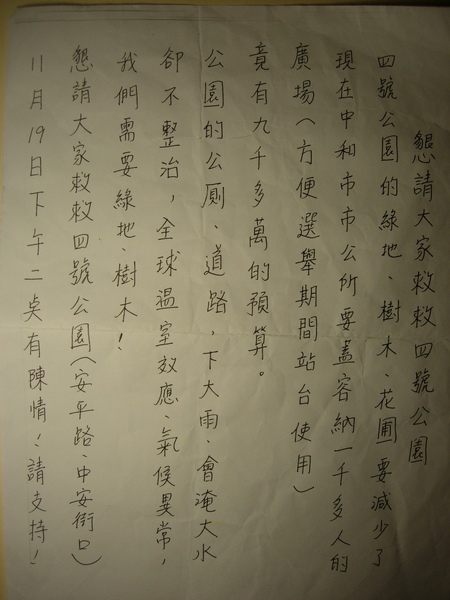 懇請大家救救四號公園
四號公園的綠地、樹木、花圃要減少了
現在中和市市公所要蓋容納一千多人的
廣場(方便選舉期間站台使用)
竟有九千多萬的預算。
公園的公厠、道路,下大雨、會淹大水
卻不整治,全球溫室效應、氣候異常,
我們需要綠地、樹木!
懇請大家救救四號公園(安平路、中安街口)
11月19日下午二点有陳情!請支持!